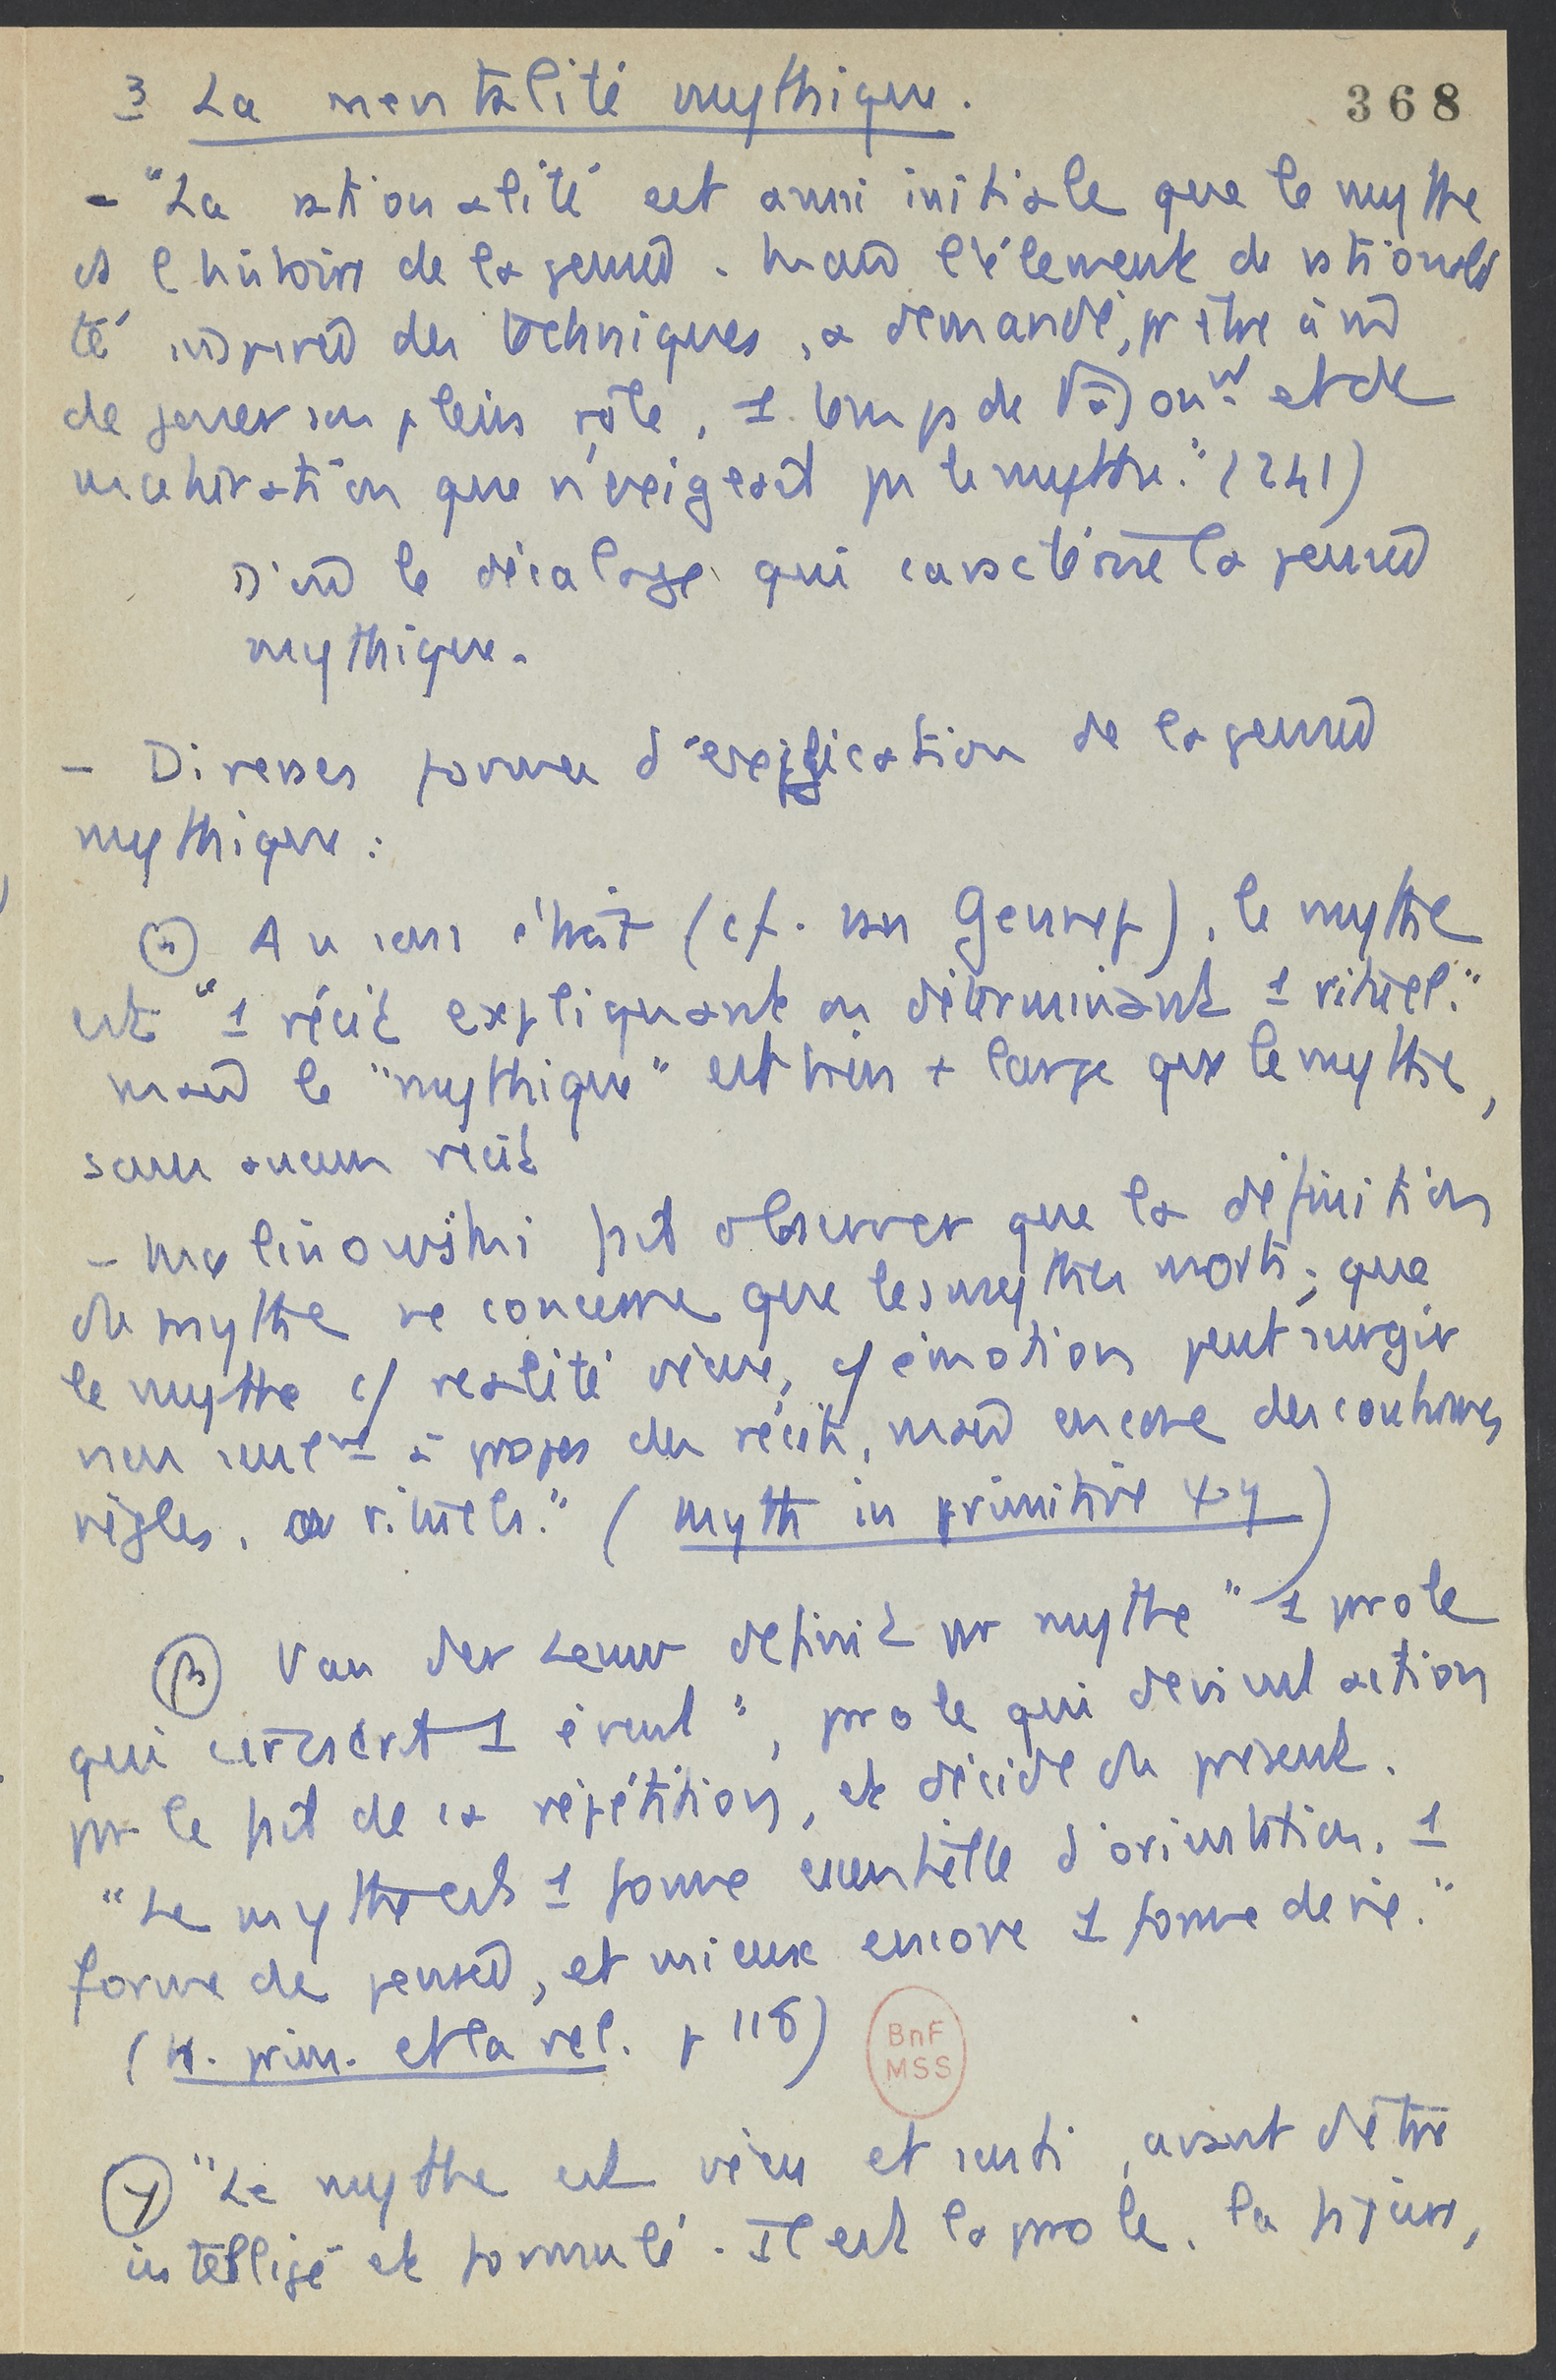 368
3 La mentalité mythique.
- "La rationalité est aussi initiale que le mythe
ds l'histoire de la pensée. Mais l'élément de rationali
té inspirée des techniques, a demandé, pr être à md
de jouer son plein rôle, 1 temps de et de
maturation que n'exigeait ps le mythe." (241)
D'où le décalage qui caractérise la pensée
mythique.
- Diverses formes d'explication de la pensée
mythique:
α Au sens étroit (cf. van Gennep), le mythe
est "1 récit expliquant ou déterminant 1 rituel."
mais le "mythique" est bien + large que le mythe,
sans aucun récit
- Malinowski fait observer que la définition
du mythe ne concerne que les mythes morts; que
le mythe c/ réalité vécue, c/ émotion peut surgir
non seulemt à propos des récits, mais encore des coutumes
règles, ou rituels." (Myth in primitive ψγ)
β Van der Leeuw définit pr mythe "1 parole
qui circonscrit 1 évent", parole qui devient action
pr le fait de sa répétition, et décide du présent.
"Le mythe est 1 forme essentielle d'orientation. 1
forme de pensée, et mieux encore 1 forme de vie."
(H. prim. et la rel. p 118)
BnF
MSS
γ "Le mythe est vécu et senti, avant d'être
intelligé et formulé. Il est la parole, la figure,